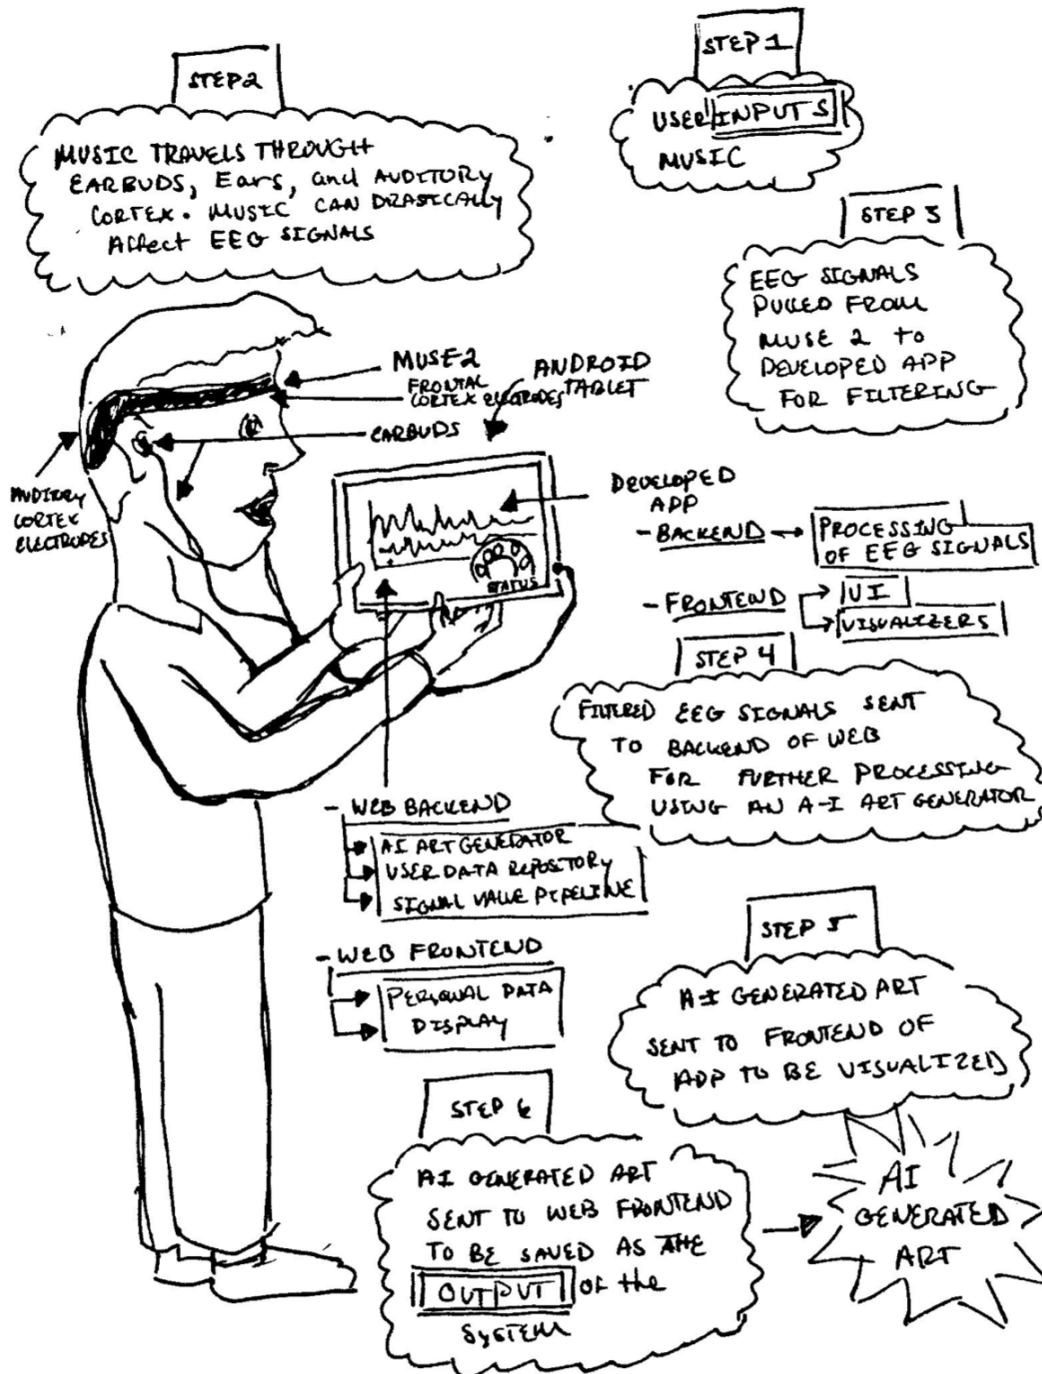 STEP 1
USER INPUTS
MUSIC
STEP 2
MUSIC TRAVELS THROUGH
EARBUDS, Ears, and AUDITORY
CORTEX. MUSIC CAN DRASTICALLY
Affect EEG SIGNALS
STEP 3
EEG SIGNALS
PULLED FROM
MUSE 2 to
DEVELOPED APP
FOR FILTERING
MUSE 2
FRONTAL
CORTEX ELECTRODES
ANDROID
TABLET
EARBUDS
AUDITORY
CORTEX
ELECTRODES
STATUS
DEVELOPED
APP
- BACKEND
PROCESSING
OF EEG SIGNALS
- FRONTEND
UI
VISUALIZERS
STEP 4
FILTERED EEG SIGNALS SENT
TO BACKEND OF WEB
FOR FURTHER PROCESSING
USING AN A-I ART GENERATOR
- WEB BACKEND
AI ART GENERATOR
USER DATA REPOSITORY
SIGNAL VALUE PIPELINE
- WEB FRONTEND
PERSONAL DATA
DISPLAY
STEP 5
A-I GENERATED ART
SENT TO FRONTEND OF
APP TO BE VISUALIZED
STEP 6
AI GENERATED ART
SENT TO WEB FRONTEND
TO BE SAVED AS THE
OUTPUT of the
SYSTEM
AI
GENERATED
ART